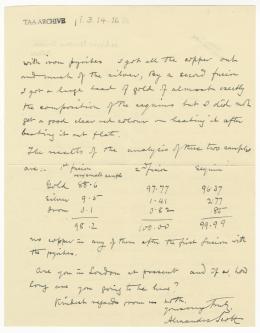 TAA ARCHIVE i. 3. 14. 16
with iron pyrites I got all the copper out
and much of the silver, By a second fusion
I got a large bead of gold of almost exactly
the composition of the sequins but I did not
get a good clean red colour on heating it after
beating it out flat.
The results of the analysis of these two samples
are:- 1st fusion 2nd fusion Sequins
Gold 88.6 97.77 96.37
Silver 9.5 1.41 2.77
Iron 0.1 0.82 .85
98.2 100.00 99.99
no copper in any of them after the first fusion with
the pyrites.
Are you in London at present and if so, how
long are you going to be here?
Kindest regards from us both.
Yours very truly
Alexander Scott